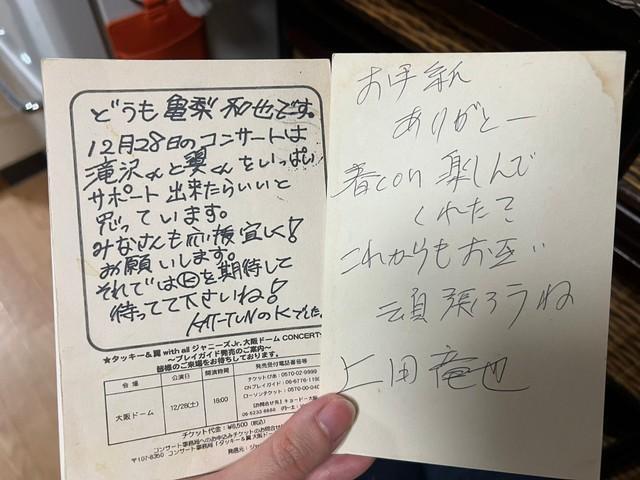 どうも亀梨和也です。
12月28日のコンサートは
滝沢くんと翼くんをいっぱい
サポート出来たらいいと
思っています。
みなさんも応援宜しく!
お願いします。
それでは㊤を期待して
待ってて下さいね!
KAT-TUNのKでした
★タッキー&翼 with all ジャニーズJr. 大阪ドーム CONCERT
〜プレイガイド発売のご案内〜
皆様のご来場をお待ちしております。
会場 公演日 開演時間 発売受付電話番号等
大阪ドーム 12/28(土) 18:00
チケットぴあ:0570-02-9999
CNプレイガイド:06-6776-1199
ローソンチケット:0570-00-040
06-6233-8888
チケット代金:¥6,500(税込)
〒107-8350 コンサート事務局「タッキー&翼 大阪ドーム
お手紙
ありがとー
春con 楽しんで
くれたて
これからもお互い
頑張ろうね
上田竜也